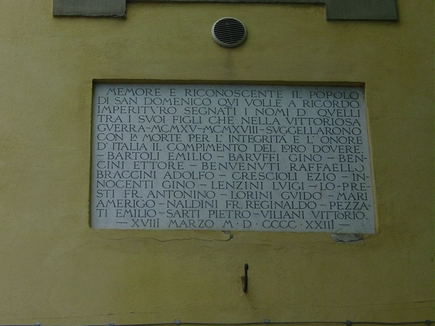 MEMORE E RICONOSCENTE IL POPOLO
DI SAN DOMENICO QVI VOLLE A RICORDO
IMPERITVRO SEGNATI I NOMI D QVELLI
TRA I SVOI FIGLI CHE NELLA VITTORIOSA
GVERRA-MCMXV-MCMXVIII-SVGGELLARONO
CON LA MORTE PER L'INTEGRITÀ E L'ONORE
D'ITALIA IL COMPIMENTO DEL LORO DOVERE.
-BARTOLI EMILIO-BARVFFI GINO-BEN-
CINI ETTORE-BENVENVTI RAFFAELLO
BRACCINI ADOLFO-CRESCIOLI EZIO-IN-
NOCENTI GINO-LENZINI LUIGI-LO-PRE-
STI FR. ANTONINO-LORINI GVIDO-MARI
AMERIGO-NALDINI FR. REGINALDO-PEZZA-
TI EMILIO-SARTI PIETRO-VILIANI VITTORIO.
-XVIII MARZO M.D.CCCC.XXIII-